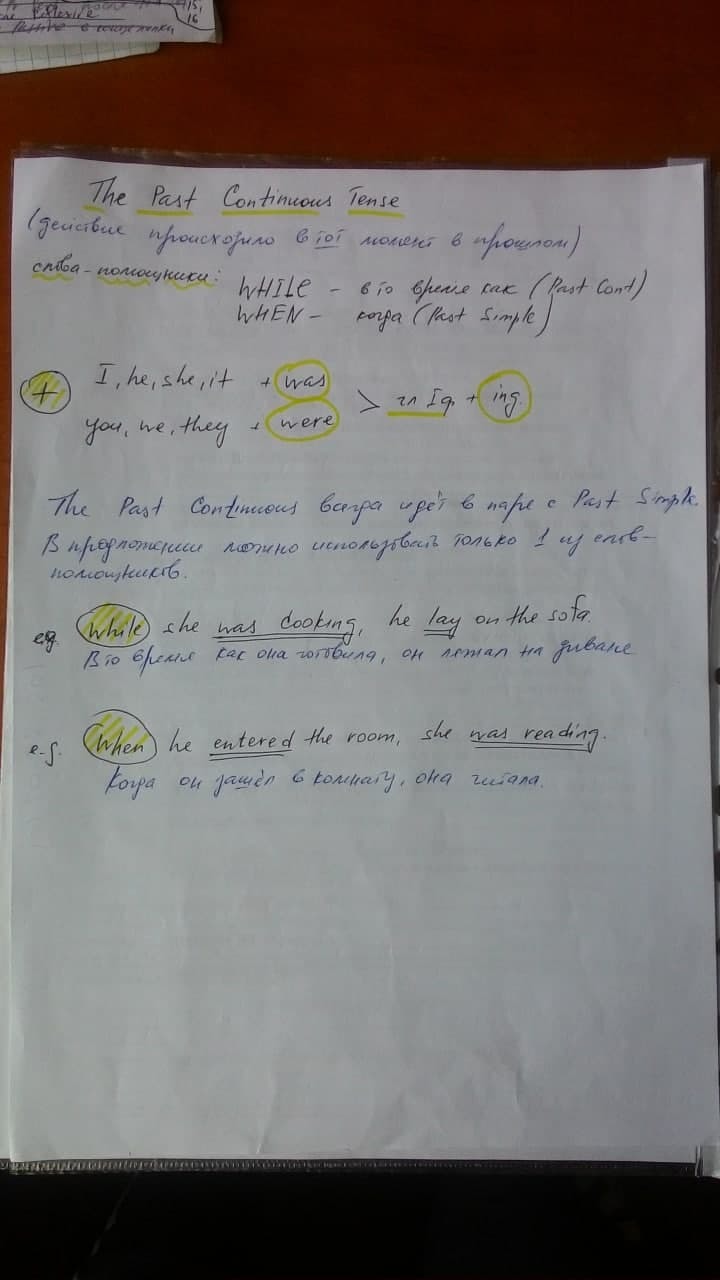 после
15,
16
Passive в
The Past Continuous Tense
(действие происходило в тот момент в прошлом)
слова-помощники:
WHILE – в то время как (Past Cont)
WHEN – когда (Past Simple)
+
I, he, she, it + was
you, we, they + were
> гл Iф + ing.
The Past Continuous всегда идёт в паре с Past Simple.
В предложении можно использовать только 1 из слов-
помощников.
eg. While she was cooking, he lay on the sofa.
В то время как она готовила, он лежал на диване
e.g. When he entered the room, she was reading.
Когда он зашёл в комнату, она читала.